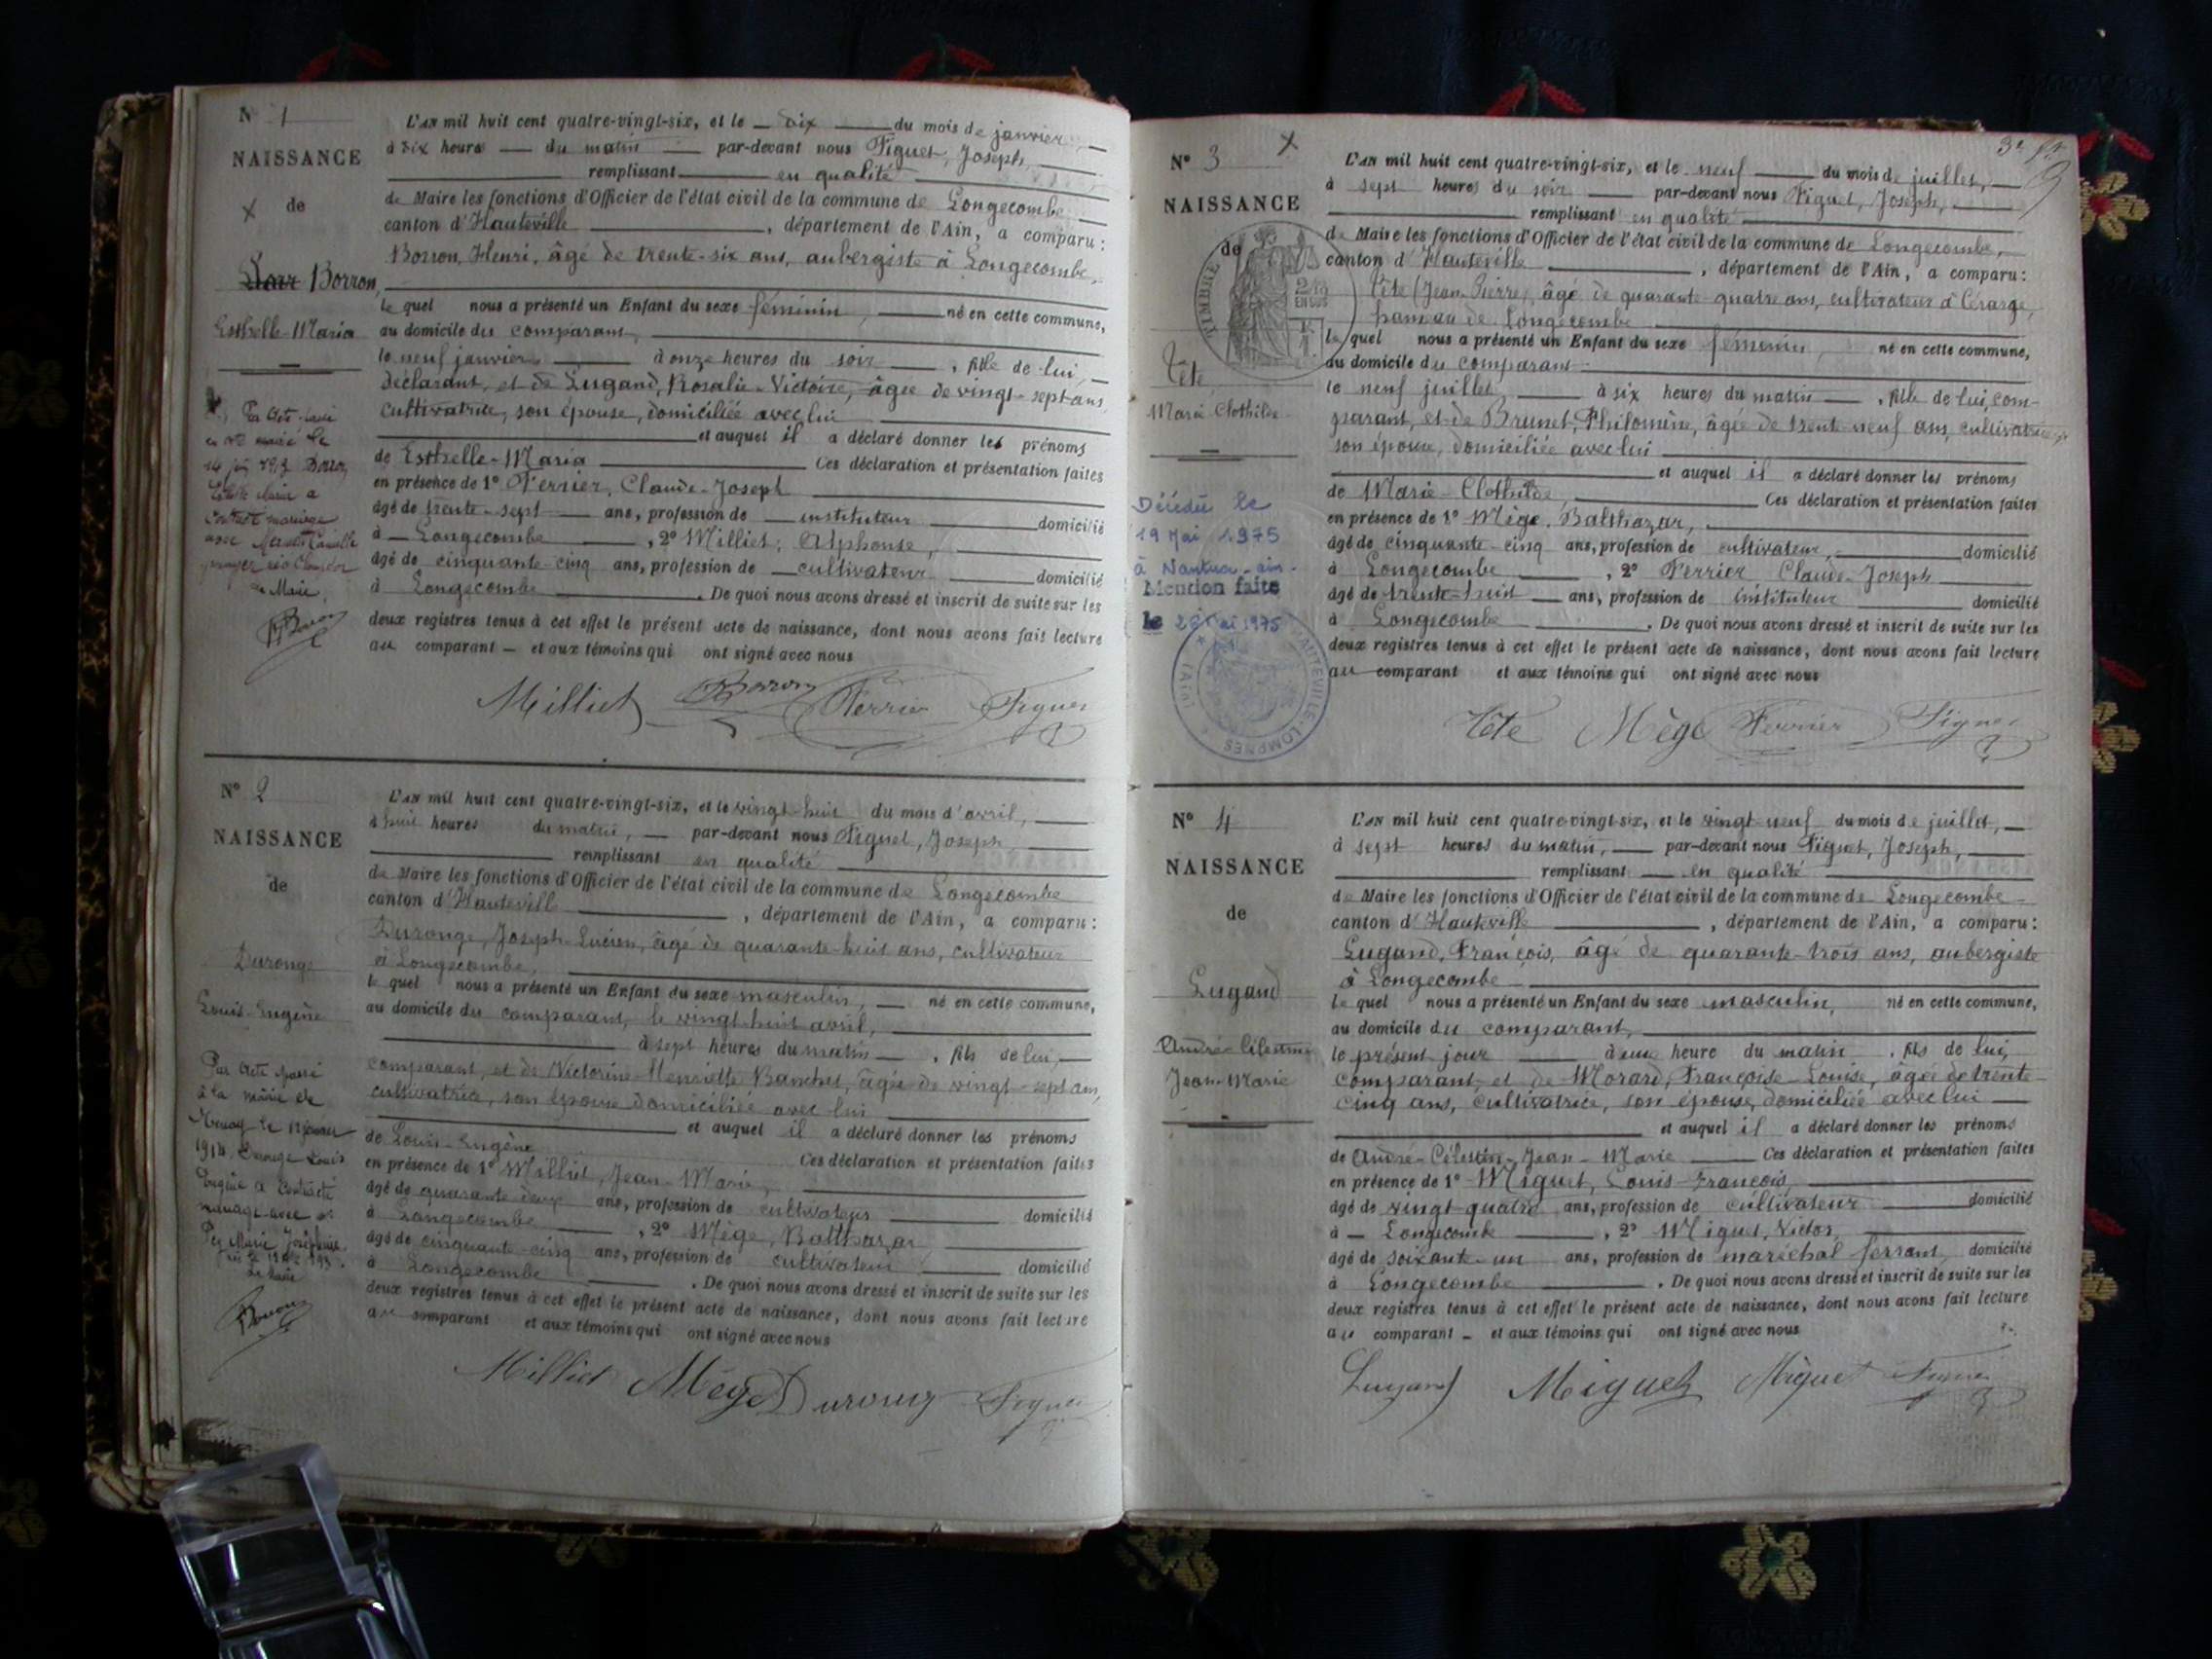 N° 1
NAISSANCE
de
Borron,
Esthelle-Maria
L'AN mil huit cent quatre-vingt-six, et le dix du mois de janvier,
à dix heure du matin par-devant nous Figuet, Joseph,
remplissant en qualité
de Maire les fonctions d'Officier de l'état civil de la commune de Longecombe
canton d'Hauteville, département de l'Ain, a comparu:
Borron, Henri, âgé de trente-six ans, aubergiste à Longecombe,
lequel nous a présenté un Enfant du sexe féminin, né en cette commune,
au domicile du comparant,
le neuf janvier à onze heures du soir, fille de lui,
déclarant, et de Lugand, Rosalie-Victoire, âgée de vingt-sept ans,
cultivatrice, son épouse, domiciliée avec lui
et auquel il a déclaré donner les prénoms
de Esthelle-Maria Ces déclaration et présentation faites
en présence de 1° Perrier, Claude-Joseph
âgé de trente-sept ans, profession de instituteur domicilié
à Longecombe, 2° Milliet, Alphonse,
âgé de cinquante-cinq ans, profession de cultivateur domicilié
à Longecombe. De quoi nous avons dressé et inscrit de suite sur les
deux registres tenus à cet effet le présent acte de naissance, dont nous avons fait lecture
au comparant et aux témoins qui ont signé avec nous
Milliet Borron Perrier Figuet
N° 2
NAISSANCE
de
Duronge
Louis-Eugène
Par acte passé
à la mairie de
1914 Duronge Louis
Eugène a contracté
mariage avec
L'AN mil huit cent quatre-vingt-six, et le vingt-huit du mois d'avril,
à huit heures du matin, par-devant nous Figuet, Joseph
remplissant en qualité
de Maire les fonctions d'Officier de l'état civil de la commune de Longecombe
canton d'Hauteville, département de l'Ain, a comparu:
Duronge, Joseph-Lucien, âgé de quarante-huit ans, cultivateur
à Longecombe,
lequel nous a présenté un Enfant du sexe masculin, né en cette commune,
au domicile du comparant, le vingt-huit avril,
à sept heures du matin, fils de lui,
comparant, et de Victorine-Henriette Banchet, âgée de vingt-sept ans,
cultivatrice, son épouse domiciliée avec lui
et auquel il a déclaré donner les prénoms
de Louis-Eugène Ces déclaration et présentation faites
en présence de 1° Milliet, Jean-Marie,
âgé de quarante-deux ans, profession de cultivateur domicilié
à Longecombe, 2° Mège, Balthazar
âgé de cinquante-cinq ans, profession de cultivateur domicilié
à Longecombe. De quoi nous avons dressé et inscrit de suite sur les
deux registres tenus à cet effet le présent acte de naissance, dont nous avons fait lecture
au comparant et aux témoins qui ont signé avec nous
Milliet Mège Duronge Figuet
N° 3
NAISSANCE
de
TIMBRE
Tête
Marie Clothilde
Décédée le
19 Mai 1975
à Nantua-ain-
Mention faite
le 26 Mai 1975
HAUTEVILLE-LOMPNES
(AIN)
L'AN mil huit cent quatre-vingt-six, et le neuf du mois de juillet,
à sept heures du soir par-devant nous Figuet, Joseph,
remplissant en qualité
de Maire les fonctions d'Officier de l'état civil de la commune de Longecombe,
canton d'Hauteville, département de l'Ain, a comparu:
Tête (Jean-Pierre), âgé de quarante-quatre ans, cultivateur à Cérarge,
hameau de Longecombe
lequel nous a présenté un Enfant du sexe féminin, né en cette commune,
au domicile du comparant
le neuf juillet à six heures du matin, fille de lui, com-
parant, et de Brunet, Philomène, âgée de trente-neuf ans, cultivatrice
son épouse, domiciliée avec lui
et auquel il a déclaré donner les prénoms
de Marie-Clothilde Ces déclaration et présentation faites
en présence de 1° Mège, Balthazar,
âgé de cinquante-cinq ans, profession de cultivateur, domicilié
à Longecombe, 2° Perrier Claude-Joseph
âgé de trente-huit ans, profession de instituteur domicilié
à Longecombe. De quoi nous avons dressé et inscrit de suite sur les
deux registres tenus à cet effet le présent acte de naissance, dont nous avons fait lecture
au comparant et aux témoins qui ont signé avec nous
Tête Mège Perrier Figuet
N° 4
NAISSANCE
de
Lugand
André-Célestin
Jean-Marie
L'AN mil huit cent quatre-vingt-six, et le vingt-neuf du mois de juillet,
à sept heures du matin, par-devant nous Figuet, Joseph,
remplissant en qualité
de Maire les fonctions d'Officier de l'état civil de la commune de Longecombe
canton d'Hauteville, département de l'Ain, a comparu:
Lugand, François, âgé de quarante-trois ans, aubergiste
à Longecombe
lequel nous a présenté un Enfant du sexe masculin, né en cette commune,
au domicile du comparant,
le présent jour à une heure du matin, fils de lui,
comparant, et de Morard, Françoise-Louise, âgée de trente-
cinq ans, cultivatrice, son épouse, domiciliée avec lui
et auquel il a déclaré donner les prénoms
de André-Célestin-Jean-Marie Ces déclaration et présentation faites
en présence de 1° Miguet, Louis-François,
âgé de vingt-quatre ans, profession de cultivateur domicilié
à Longecombe, 2° Miguet, Victor,
âgé de soixante-un ans, profession de maréchal ferrant, domicilié
à Longecombe. De quoi nous avons dressé et inscrit de suite sur les
deux registres tenus à cet effet le présent acte de naissance, dont nous avons fait lecture
au comparant et aux témoins qui ont signé avec nous
Lugand Miguet Miguet Figuet